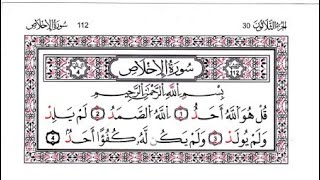 الجزء الثلاثون 30 112 سورة الإخلاص
سورة الإخلاص
بِسْمِ اللَّهِ الرَّحْمَٰنِ الرَّحِيمِ
قُلْ هُوَ اللَّهُ أَحَدٌ ١ اللَّهُ الصَّمَدُ ٢ لَمْ يَلِدْ
وَلَمْ يُولَدْ ٣ وَلَمْ يَكُن لَّهُ كُفُوًا أَحَدٌ ٤